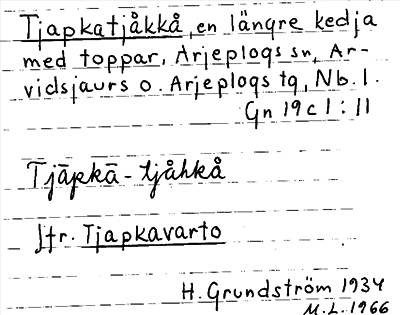 Tjapkatjåkkå, en längre kedja
med toppar, Arjeplogs sn, Ar-
vidsjaurs o. Arjeplogs tg, Nb. l.
Gn 19 c 1 : 11
Tjāpkā - tjåhkå
Jfr. Tjapkavarto
H. Grundström 1934
M.L. 1966